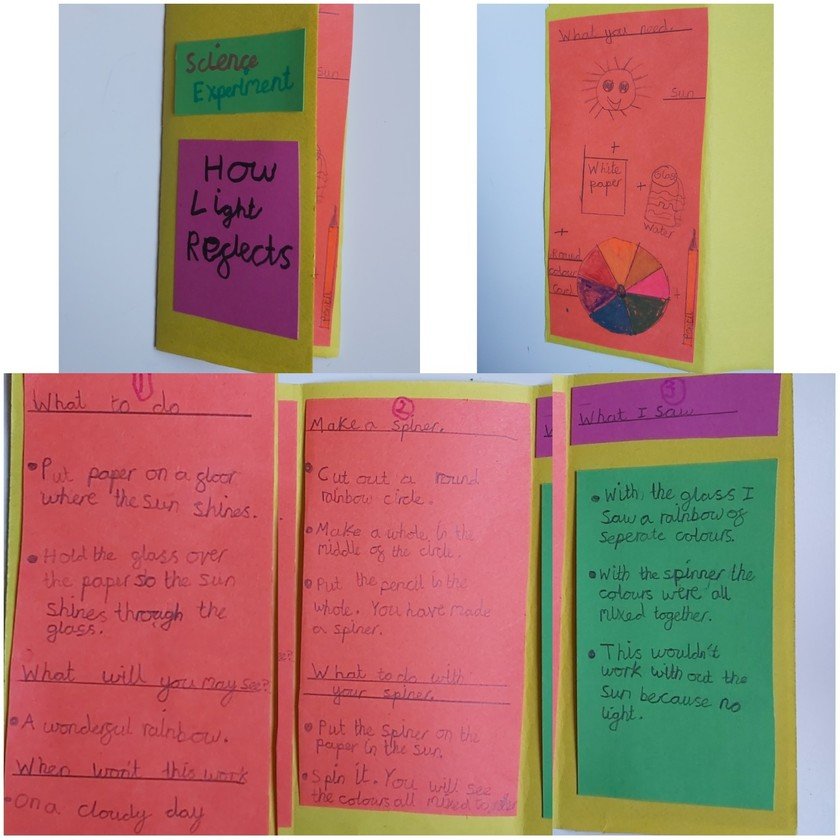 Science
Experiment
How
Light
Reflects
Sun
Pencil
What you need.
Sun
+
White
paper
+
Glass
Water
+
Round
colour
Card
+
Pencil
1
What to do
• Put paper on a floor
where the sun shines.
• Hold the glass over
the paper so the sun
shines through the
glass.
What will you may see?
• A wonderful rainbow.
When won't this work
• On a cloudy day
2
Make a spiner.
• Cut out a round
rainbow circle.
• Make a whole in the
middle of the circle.
• Put the pencil in the
whole. You have made
a spiner.
What to do with
your spiner.
• Put the spiner on the
paper in the sun.
• Spin it. You will see
the colours all mixed
3
What I saw
• With, the glass I
saw a rainbow of
seperate colours.
• With the spinner the
colours were all
mixed together.
• This wouldn't
work with out the
sun because no
light.